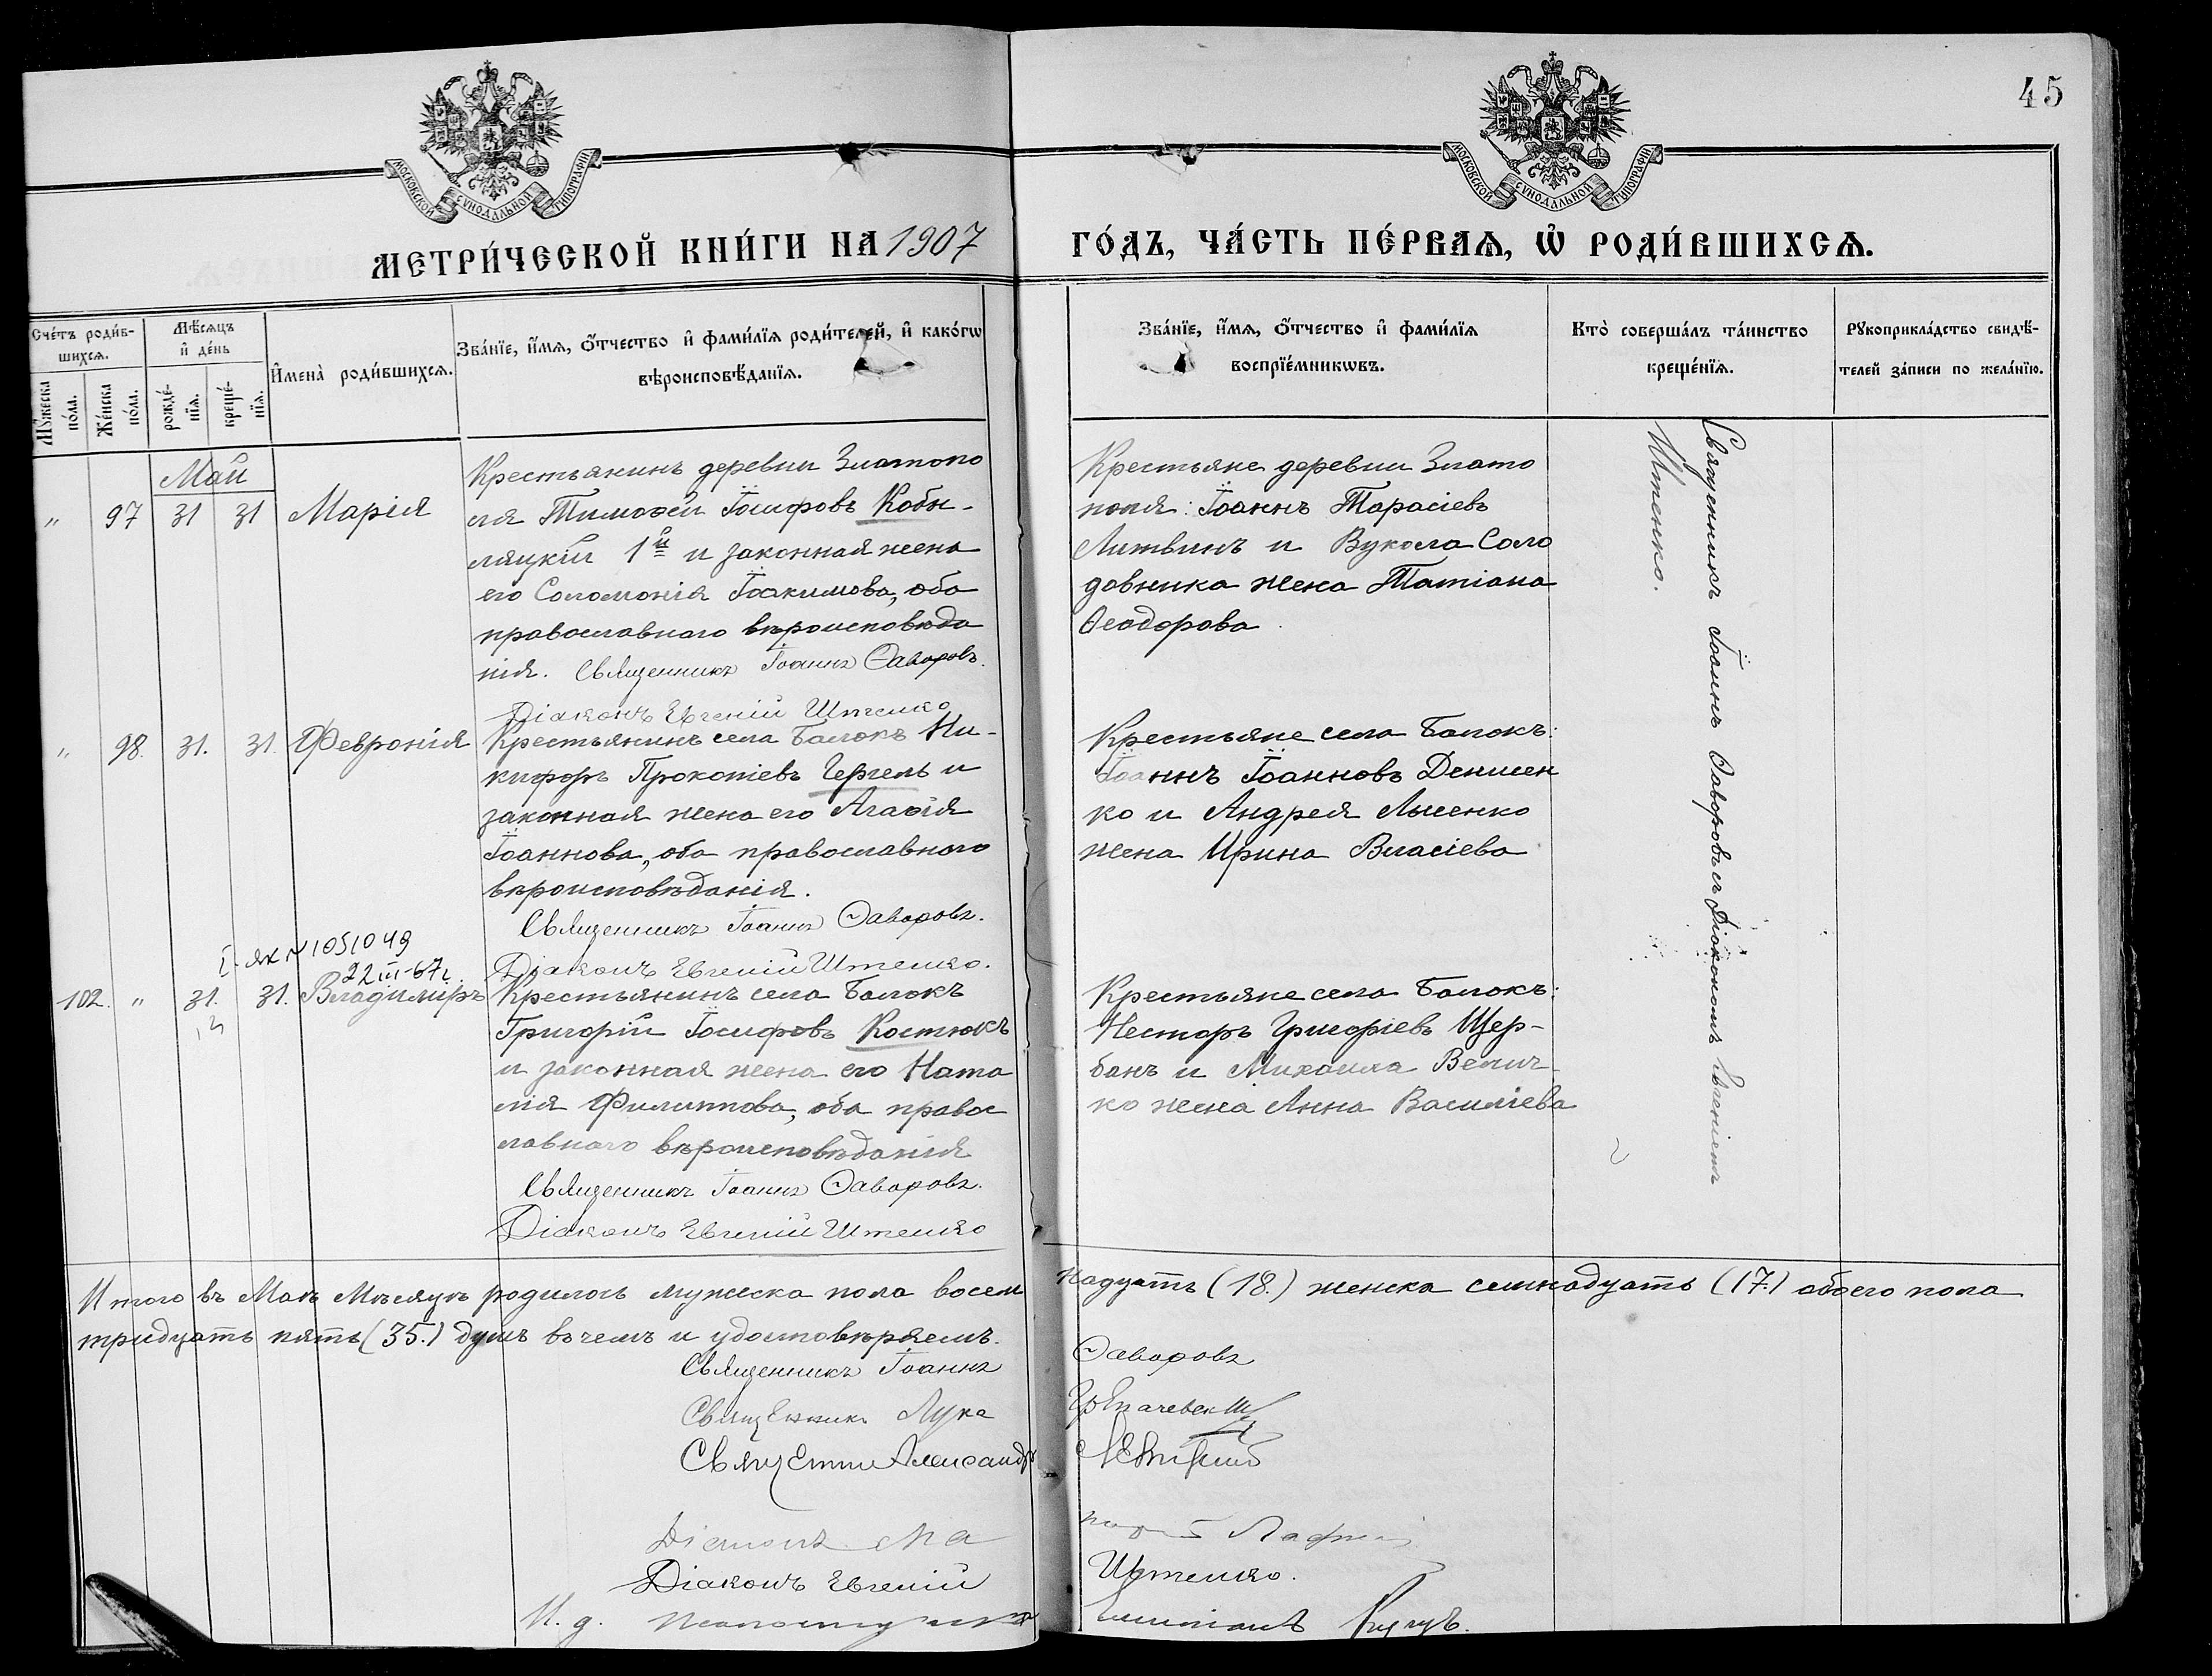 45
МОСКОВСКОЙ СУНОДАЛЬНОЙ ТИПОГРАФІИ.
МОСКОВСКОЙ СУНОДАЛЬНОЙ ТИПОГРАФІИ.
МЕТРИ́ЧЕСКОЙ КНИ́ГИ НА 1907
ГО́ДЪ, ЧА́СТЬ ПЕ́РВАѦ, Ѽ РОДИ́ВШИХСѦ.
Сче́тъ роди́в-
шихсѧ.
Мꙋ́жеска
по́ла.
Же́нска
по́ла.
Мѣ́сѧцъ
и҆ де́нь
рожде́-
нїѧ.
креще́-
нїѧ.
И҆мена̀ роди́вшихсѧ.
Зва́нїе, и҆́мѧ, ѻ҆́тчество и҆ фами́лїѧ роди́телей, и҆ како́гѡ
вѣроисповѣ́данїѧ.
Зва́нїе, и҆́мѧ, ѻ҆́тчество и҆ фами́лїѧ
воспрїе́мникѡвъ.
Кто̀ соверша́лъ та́инство
креще́нїѧ.
Рꙋкоприкла́дство свидѣ́-
телей за́писи по жела́нїю.
Май
" 97 31 31 Марія
Крестьянинъ деревни Златопо
ля Тимоѳей Іосифовъ Кобы-
ляцкій 1й и законная жена
его Соломонія Іоакимова, оба
православнаго вѣроисповѣда
нія. Священникъ Іоаннъ Ѳаворовъ.
Діаконъ Евгеній Штепко
Крестьяне деревни Злато
поля: Іоаннъ Тарасіевъ
Литвинъ и Вукола Соло
довника жена Татіана
Ѳеодорова
Священникъ Іоаннъ Ѳаворовъ съ Діакономъ Евгеніемъ
Штепко.
" 98. 31. 31. Февронія
Крестьянинъ села Балокъ Ни-
кифоръ Прокопіевъ Гергель и
законная жена его Агаѳія
Іоаннова, оба православнаго
вѣроисповѣданія.
Священникъ Іоаннъ Ѳаворовъ.
Діаконъ Евгеній Штепко.
Крестьяне села Балокъ:
Іоаннъ Іоанновъ Денисен
ко и Андрея Лысенко
жена Ирина Власіева
I-ЯК N 1051049
22 III-67г.
102. " 31. 31. Владиміръ
Крестьянинъ села Балокъ
Григорій Іосифовъ Костюкъ
и законная жена его Ната
лія Филиппова, оба правос
лавнаго вѣроисповѣданія
Священникъ Іоаннъ Ѳаворовъ.
Діаконъ Евгеній Штепко
Крестьяне села Балокъ:
Несторъ Григоріевъ Щер-
банъ и Михаила Велич-
ко жена Анна Василіева
Итого въ Маѣ Мѣсяцѣ родилось мужеска пола восем надцать (18.) женска семнадцать (17.) обоего пола
тридцать пять (35.) душъ въ чемъ и удостовѣряемъ.
Священникъ Іоаннъ Ѳаворовъ
Священникъ Лука
Александръ
Діаконъ
Діаконъ Евгеній Штепко.
И. д.